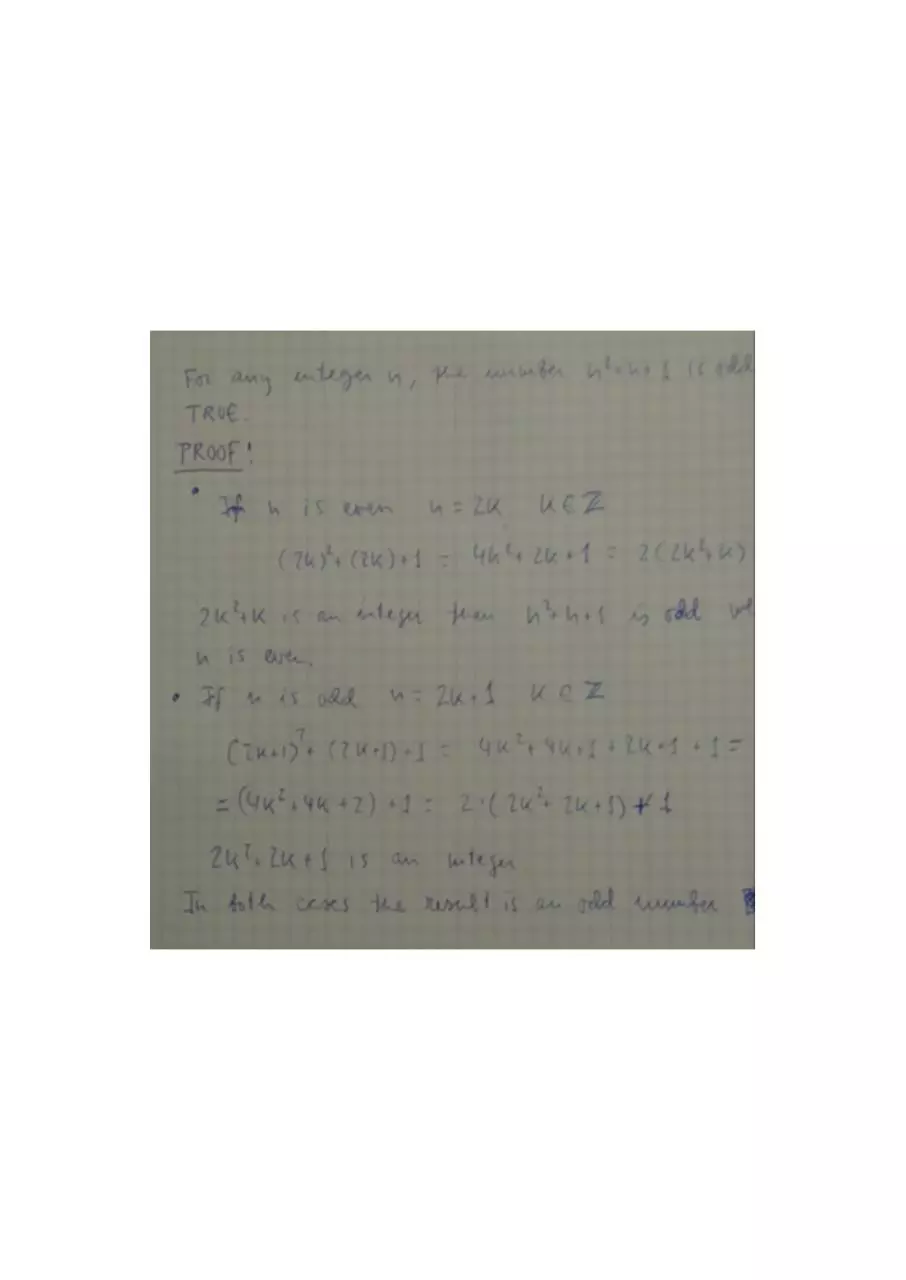 For any integer n, the number n²+n+1 is odd
TRUE.
PROOF!
• If n is even n = 2k k ∈ ℤ
(2k)²+(2k)+1 = 4k²+2k+1 = 2(2k²+k)
2k²+k is an integer then n²+n+1 is odd
n is even.
• If n is odd n = 2k+1 k ∈ ℤ
(2k+1)²+(2k+1)+1 = 4k²+4k+1+2k+1+1 =
= (4k²+4k+2)+1 = 2·(2k²+2k+1)+1
2k²+2k+1 is an integer
In both cases the result is an odd number